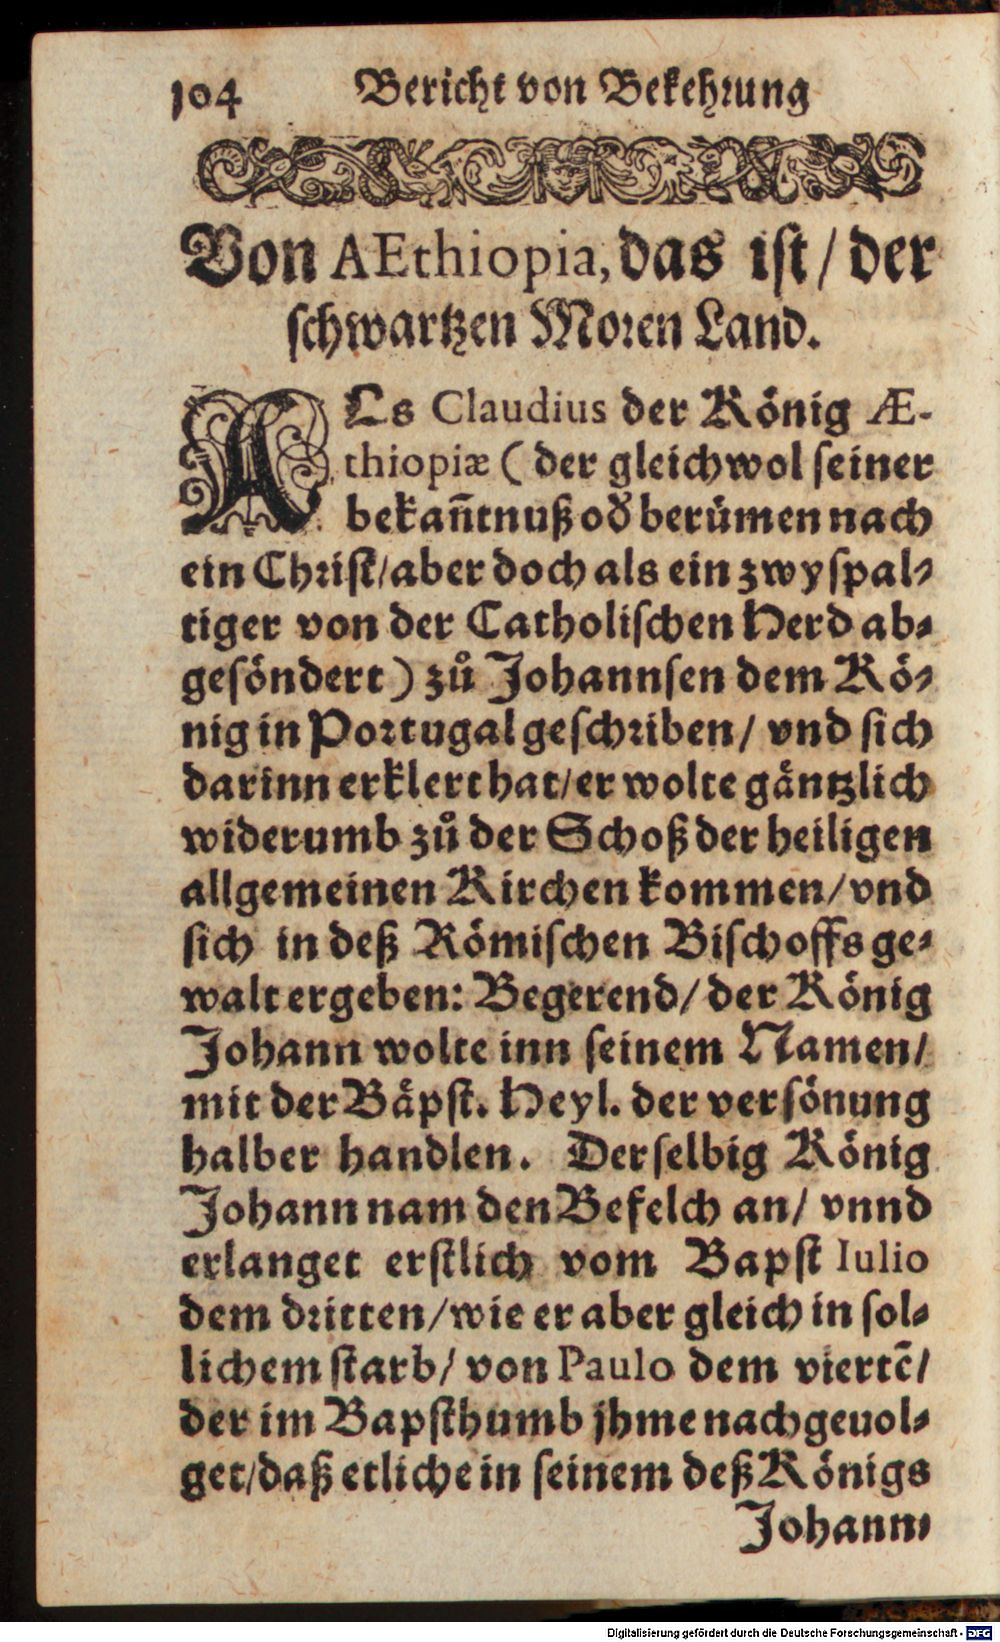 104 Bericht von Bekehrung
Von AEthiopia, das ist / der
schwartzen Moren Land.
ALs Claudius der König Æ-
thiopiæ ( der gleichwol seiner
bekan̄tnuß oð berümen nach
ein Christ/ aber doch als ein zwyspal-
tiger von der Catholischen Herd ab-
gesöndert ) zů Johannsen dem Kö-
nig in Portugal geschriben/ vnd sich
darinn erklert hat/ er wolte gäntzlich
widerumb zů der Schoß der heiligen
allgemeinen Kirchen kommen/ vnd
sich in deß Römischen Bischoffs ge-
walt ergeben: Begerend/ der König
Johann wolte inn seinem Namen/
mit der Bäpst. Heyl. der versönung
halber handlen. Derselbig König
Johann nam den Befelch an/ vnnd
erlanget erstlich vom Bapst Iulio
dem dritten/ wie er aber gleich in sol-
lichem starb/ von Paulo dem viertē/
der im Bapsthumb jhme nachgeuol-
get/ daß etliche in seinem deß Königs
Johann-
Digitalisierung gefördert durch die Deutsche Forschungsgemeinschaft - DFG